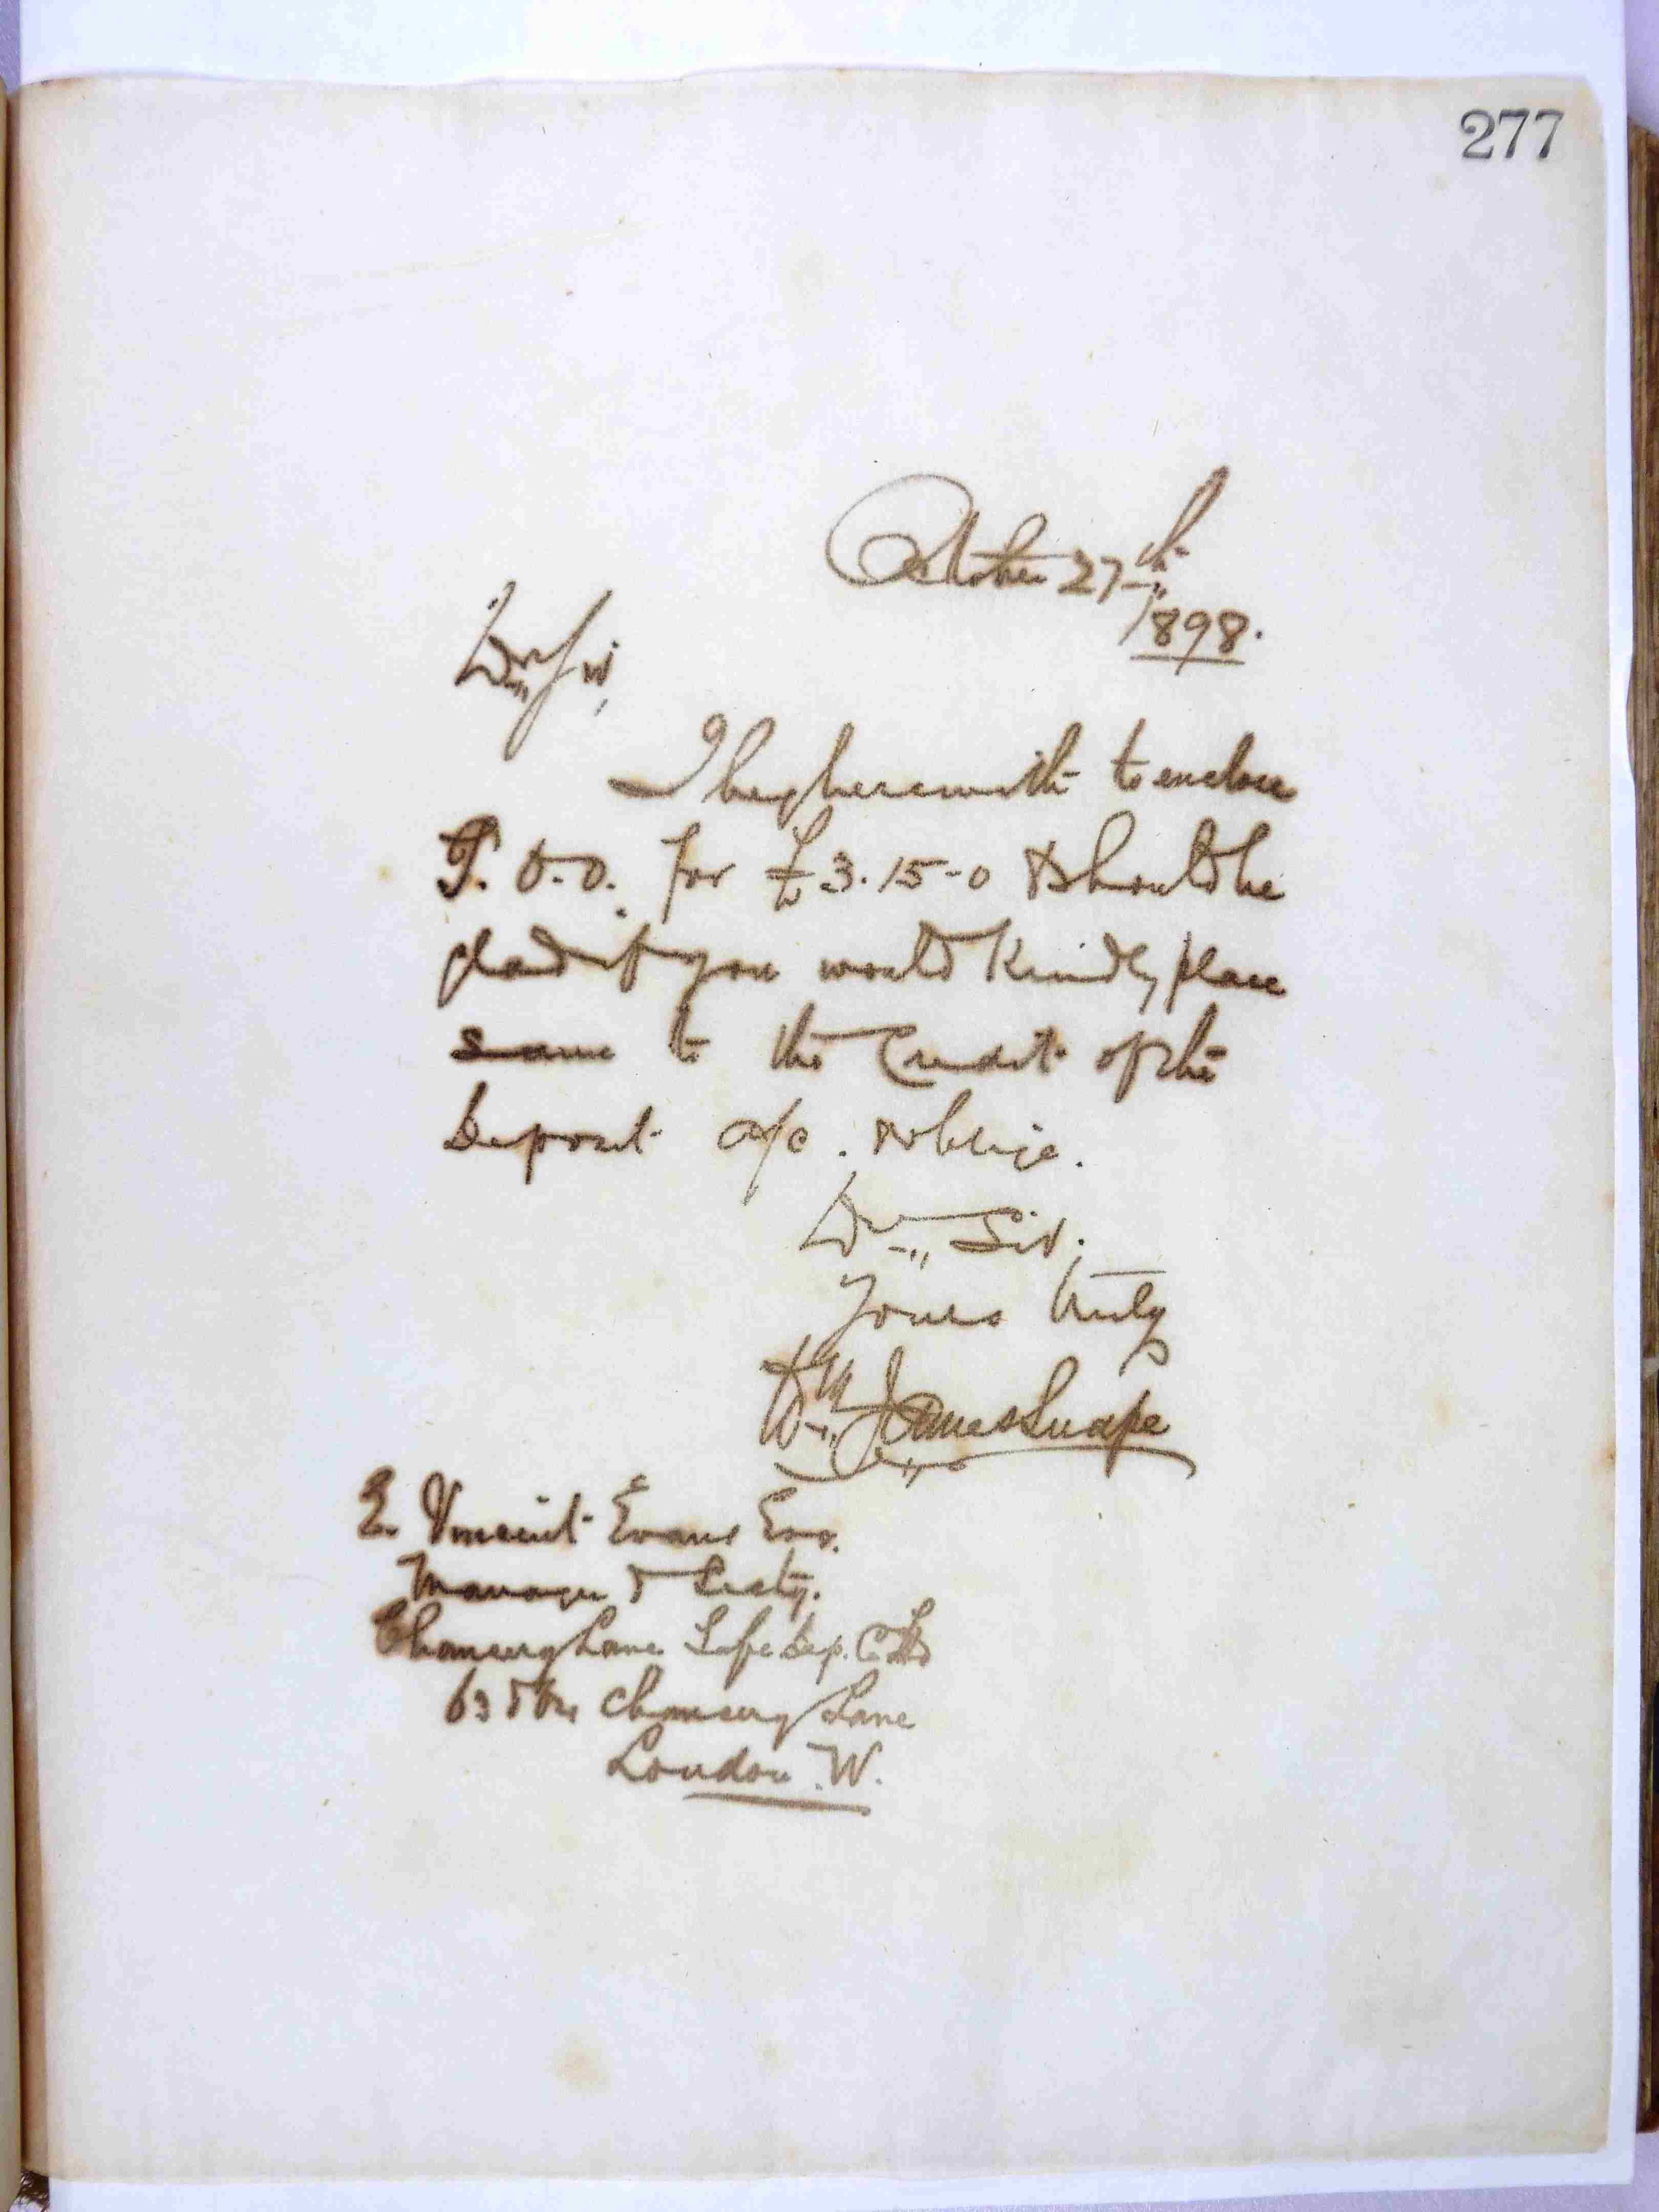 277
October 27th
1898.
Dr Sir,
I beg herewith to enclose
P.O.O. for £3.15-0 & should be
glad if you would kindly place
same to the Credit of the
Deposit a/c. & oblige.
Dr Sir,
Yours truly
Wm James Snape
E. Vincent Evans Esq.
Manager & Secty.
Chancery Lane Safe Dep. Co Ltd
63 & Chancery Lane
London. W.